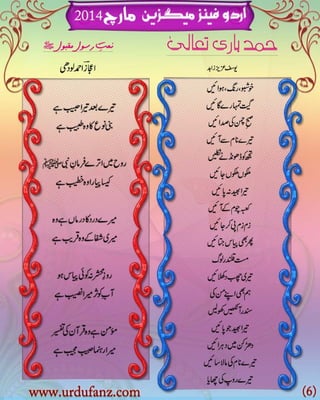 اردو فینز میگزین مارچ 2014
حمد باری تعالیٰ
یوسف عزیز زاہد
خوشبو، رنگ، ہوائیں
گیت تمہارے گائیں
صبح چمن کی صدائیں
تیرے نام سے آئیں
تجھ کو ڈھونڈنے نکلیں
ملکوں ملکوں جائیں
تیرا بھید نہ پائیں
کعبہ چوم کے آئیں
زم زم پی کر جائیں
پھر بھی پیاس بتائیں
مست قلندر لوگ
تیری چھب دکھلائیں
ہم بھی اپنے من کی
سندر آنکھیں کھولیں
تیرا بھید بھید پائیں
دھڑکن میں دہرائیں
تیرے نام کی مالا سائیں
تیرے روپ کی چھایا
نعت رسول مقبول ﷺ
اعجاز احمد لودھی
تیرے بعد تیرا صاحب ہے
بنی نوع کا وہ طبیب ہے
روح میں اترے فرمان نبی ﷺ
کیسا پیارا وہ خطیب ہے
میرے درد کا درماں ہے وہ
میری شفا کے وہ قریب ہے
روز محشر نہ کوئی پیاس ہو
آب کوثر میرا نصیب ہے
مؤمن ہے وہ قرآن کی تفسیر
میرا رہنما صاحب مجیب ہے
www.urdufanz.com
(6)